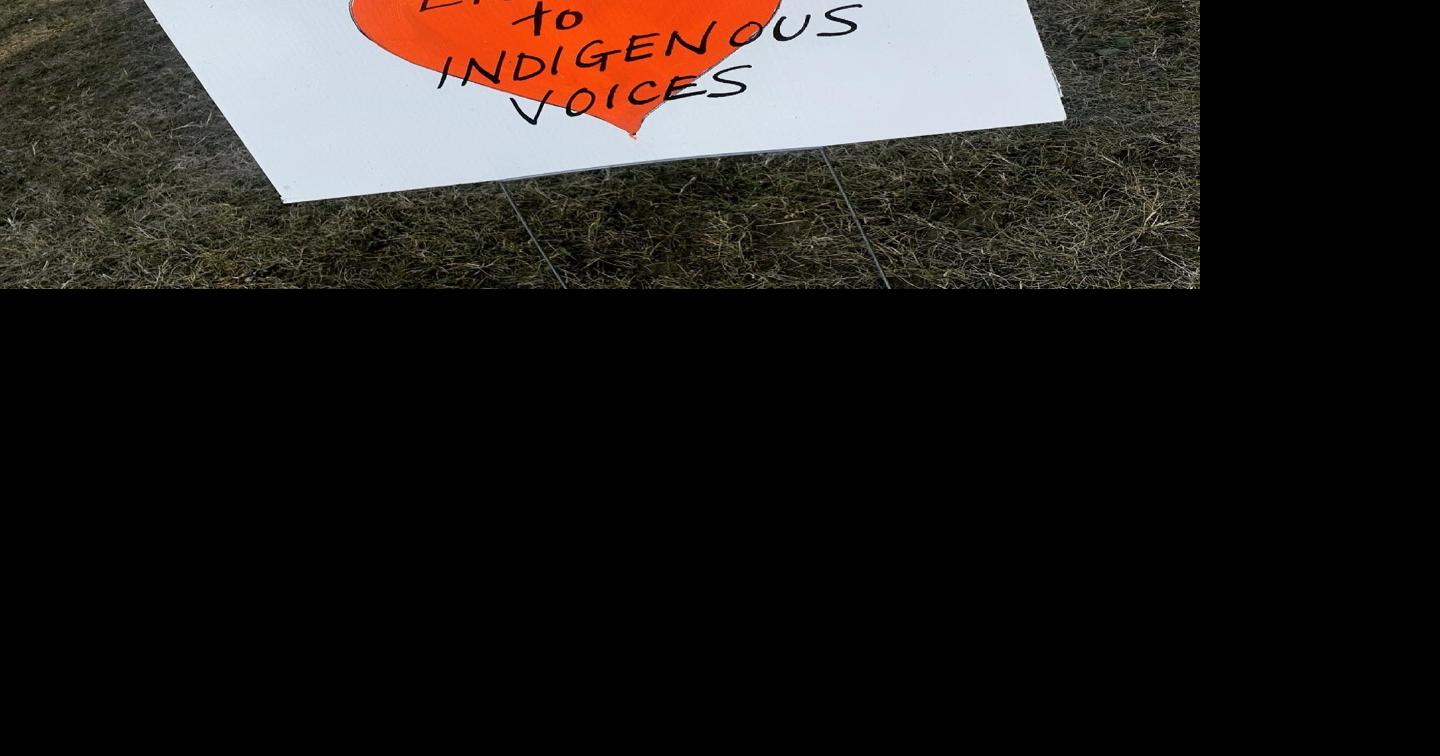 to
INDIGENOUS
VOICES